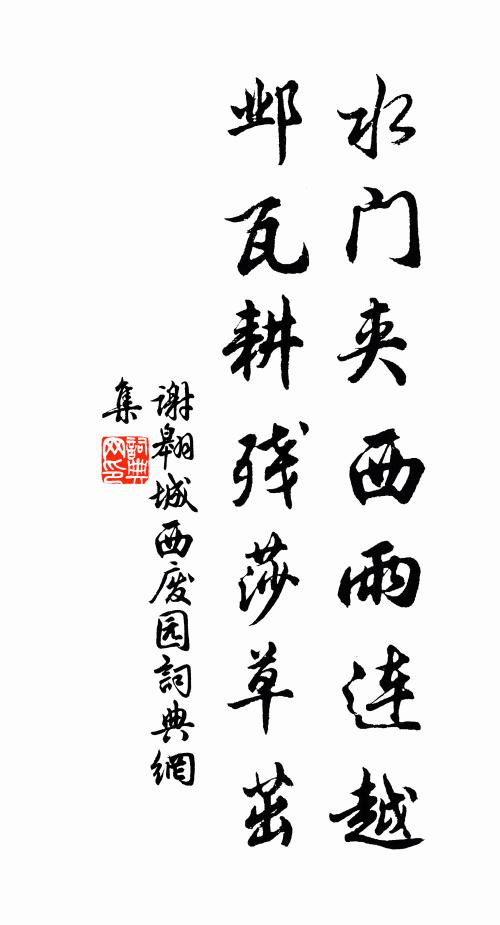 水门夹西雨连越
邺瓦耕残莎草茁
谢翱城西废园詞典網
集
詞典網印